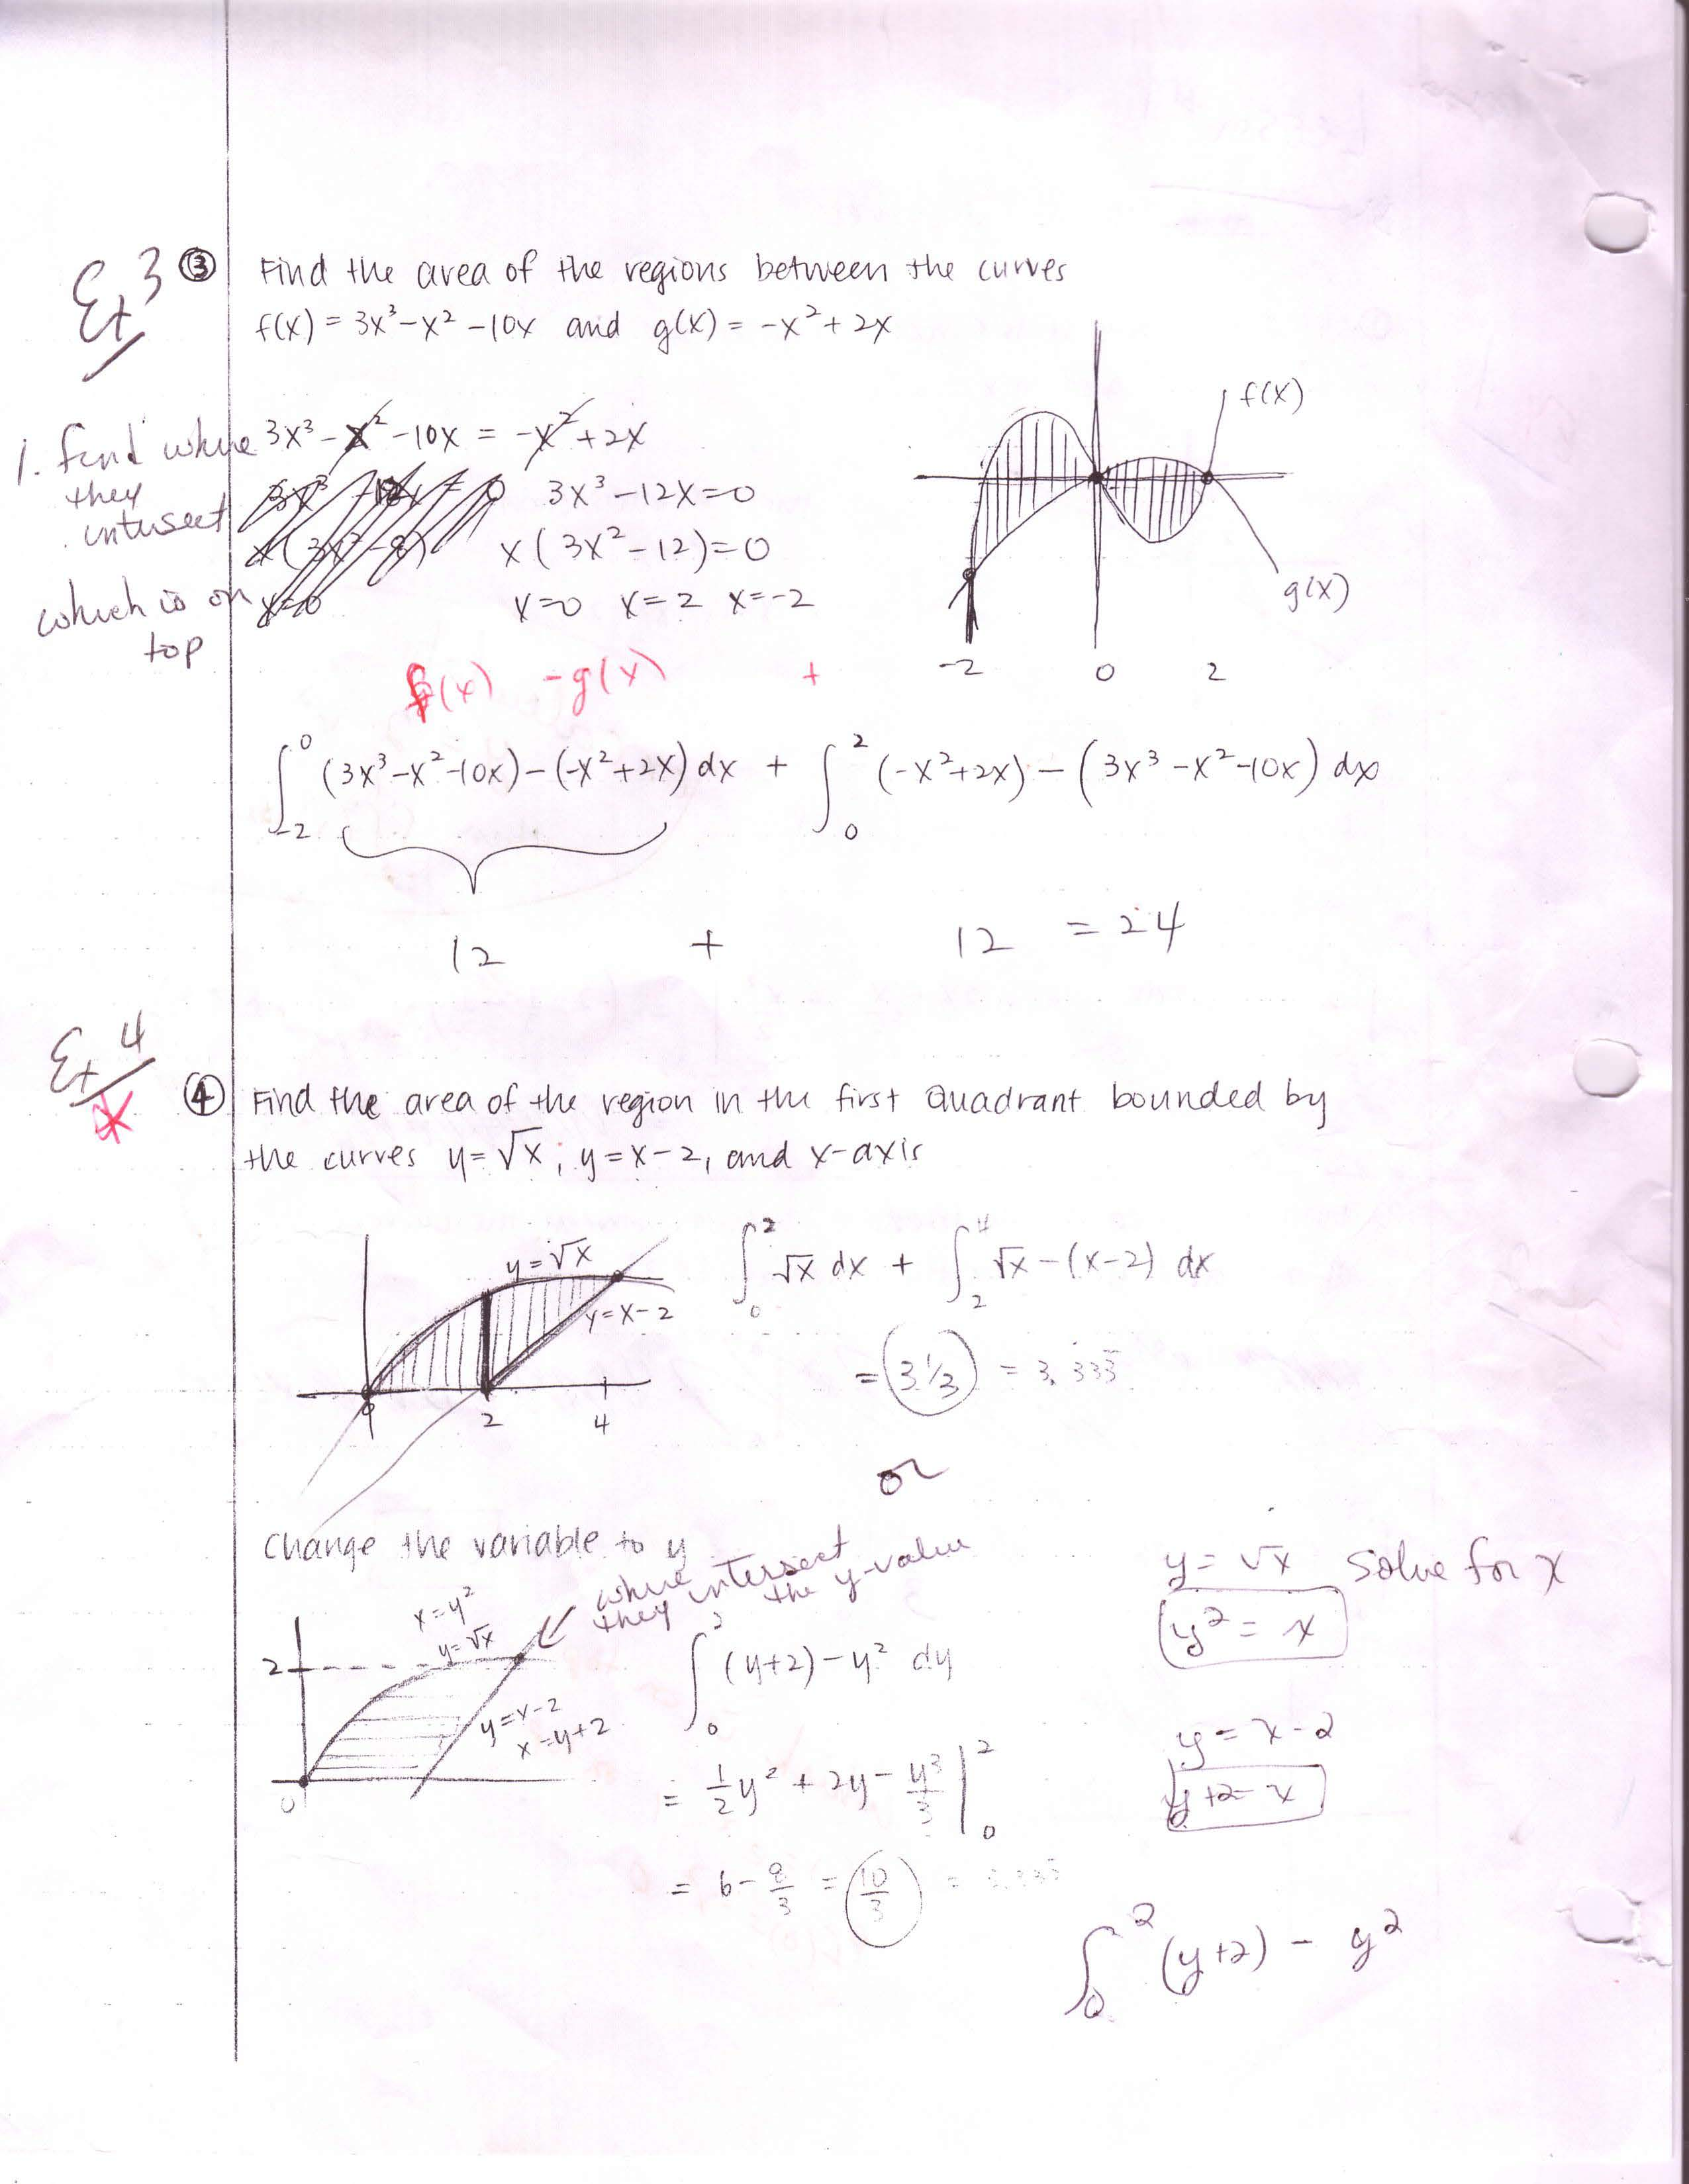 Ex 3 ③ Find the area of the regions between the curves
f(x) = 3x³-x²-10x and g(x) = -x²+2x
1. find where they intersect
which is on top
3x³-x²-10x = -x²+2x
3x³-12x=0
x(3x²-12)=0
x=0 x=2 x=-2
f(x)
g(x)
-2 0 2
f(x) -g(x) +
∫₋₂⁰ (3x³-x²-10x)-(-x²+2x)dx + ∫₀² (-x²+2x)-(3x³-x²-10x)dx
12 + 12 = 24
Ex 4 * ④ Find the area of the region in the first Quadrant bounded by
the curves y=√x; y=x-2, and x-axis
y=√x
y=x-2
0 2 4
∫₀² √x dx + ∫₂⁴ √x-(x-2) dx
= 3 1/3 = 3.333
or
Change the variable to y
where they intersect the y-value
x=y²
y=√x
2
y=x-2
x=y+2
0
∫₀² (y+2)-y² dy
= 1/2 y² + 2y - y³/3 |₀²
= 6-8/3 = 10/3 = 3.333
y=√x Solve for x
y² = x
y = x-2
y+2=x
∫₀² (y+2) - y²